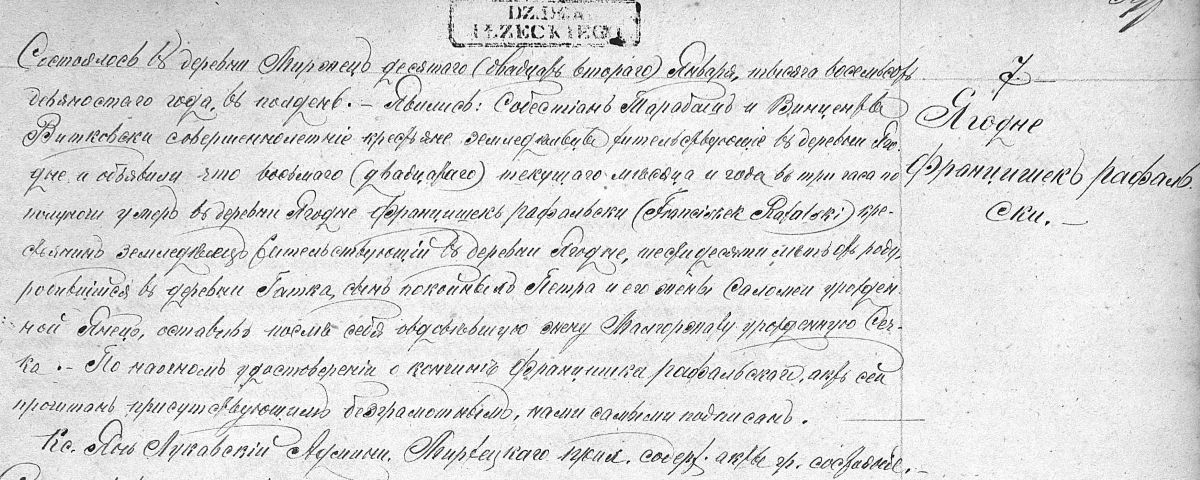 DZ.DEKA
ŁZECKIEGO
Состоялось въ деревни Миржецъ десятаго (двадцать второго) Января, тысяча восемьсотъ
девяностаго года, въ полдень. — Явились: Собестіанъ Тарабашъ и Винцентъ
Витковски совершеннолетніе крестьяне земледѣльцы жительствующіе въ деревни Яго-
дне и объявили что восьмаго (двадцатаго) текущаго мѣсяца и года въ три часа по
полуночи умеръ въ деревни Ягодне Францишекъ Рафальски (Franciszek Rafalski) кре-
стьянинъ земледѣлецъ жительствующій въ деревни Ягодне, шестидесяти лѣтъ отъ роду,
родившійся въ деревни Гатка, сынъ покойныхъ Петра и его жены Саломеи урожден-
ной Янецъ, оставивъ послѣ себя овдовѣвшую жену Малгоржату урожденную Сеч-
ка. — По наочномъ удостовереніи о кончинѣ Францишка Рафальскаго, актъ сей
прочитанъ присутствующимъ безграмотнымъ, нами самыми подписанъ.
Кс. Янъ Лукавскій Админи. Миржецкаго прих. содерж. акты гр. состоянія. —
7.
Ягодне
Францишекъ Рафаль
ски. —